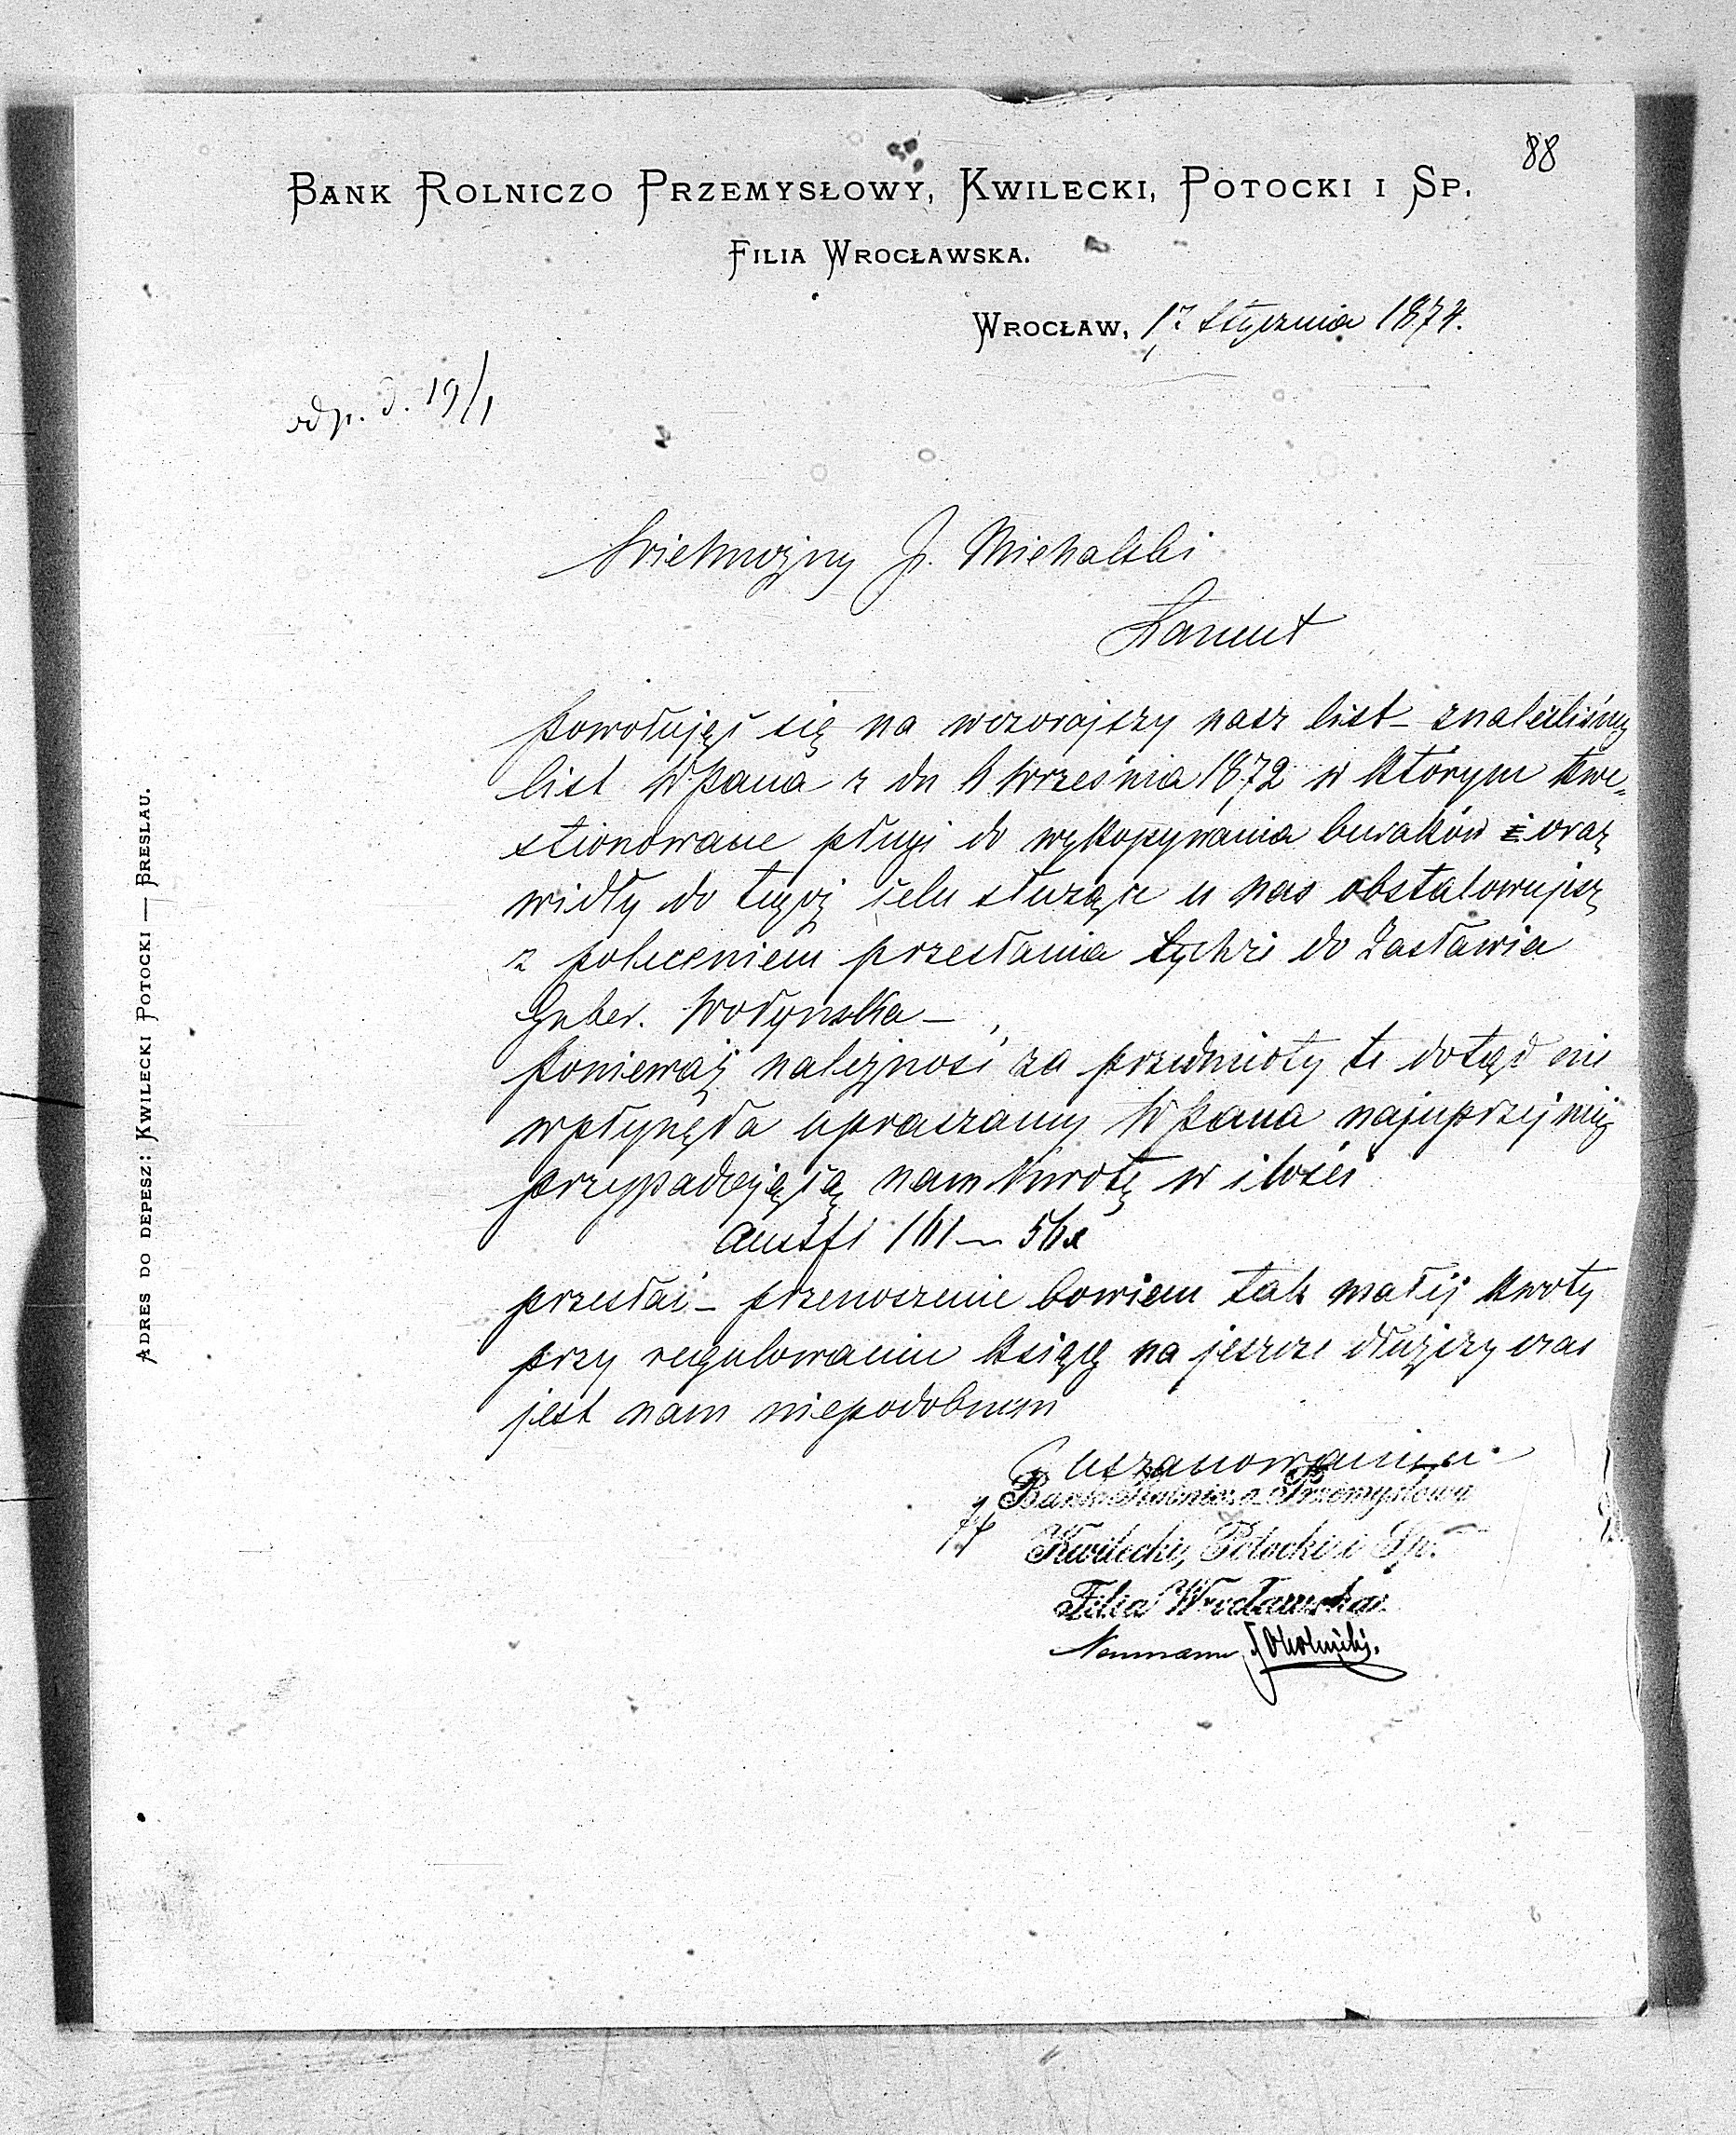 88
BANK ROLNICZO PRZEMYSŁOWY, KWILECKI, POTOCKI I SP.
FILIA WROCŁAWSKA.
WROCŁAW, 17 Stycznia 1874.
odp. d. 19/1
Wielmożny J. Michalski
Łancut
Powołując się na wczorajszy nasz list – znaleźliśmy
list WPana z dn 4 Września 1872 w którym kwe=
stionowane pługi do wykopywania buraków oraz
widły do tegoż celu służące u nas obstalowujesz
z poleceniem przesłania tychże do Zasławia
Guber. Wołynska –
Ponieważ należność za przedmioty te dotąd nie
wpłynęła upraszamy WPana najuprzejmiej
przypadającą nam kwotę w ilości
przesłać – przenoszenie bowiem tak małej kwoty
przy regulowaniu książg na jeszcze dłuższy czas
jest nam niepodobnem
Z uszanowaniem
Bank Rolniczo Przemysłowy
Kwilecki, Potocki i Sp.
Filia Wrocławska
Neumann
ADRES DO DEPESZ: KWILECKI POTOCKI — BRESLAU.